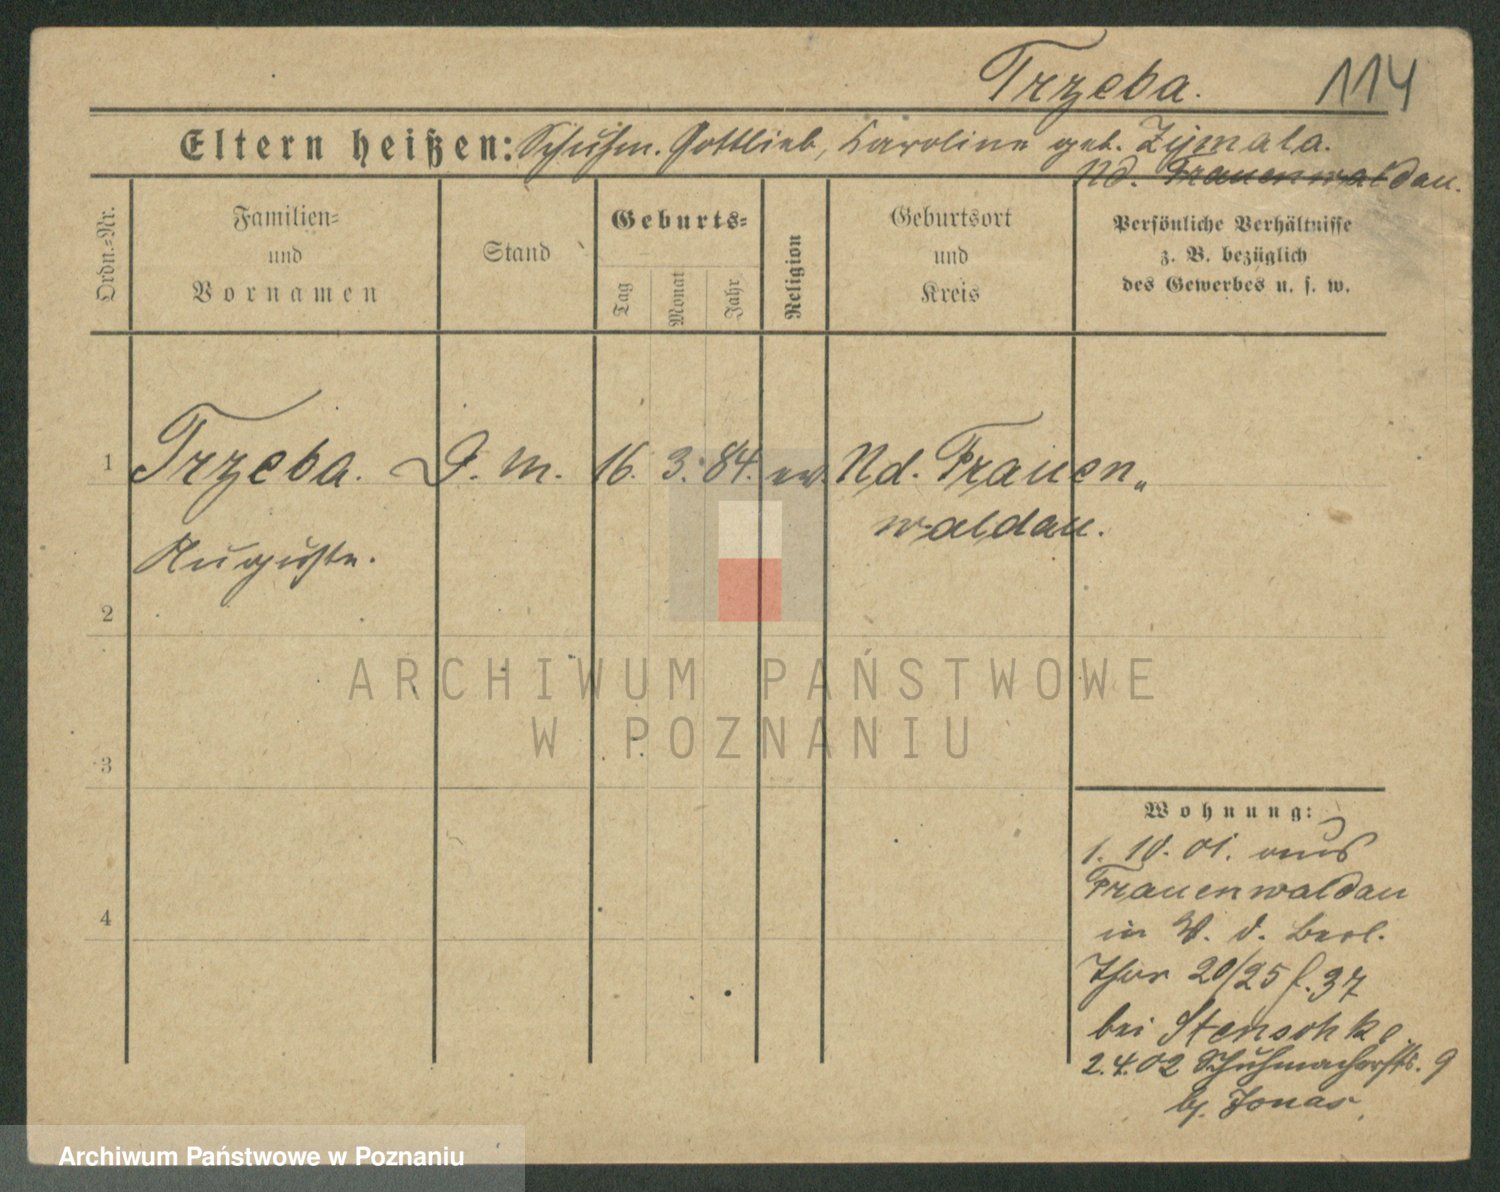 Trzeba. 114
Eltern heißen: Schuhm. Gottlieb, Karoline geb. Zymala.
Nd. Frauenwaldau.
Ordn.=Nr.
Familien=
und
Vornamen
Stand
Geburts=
Tag
Monat
Jahr
Religion
Geburtsort
und
Kreis
Persönliche Verhältnisse
z. B. bezüglich
des Gewerbes u. s. w.
1 Trzeba. D. M. 16. 3. 84. ev. Nd. Frauen„
waldau.
Auguste.
2
3
4
ARCHIWUM PAŃSTWOWE
W POZNANIU
Wohnung:
1. 10. 01. aus
Frauenwaldau
in V. d. Berl.
Thor 20/25 f. 37
bei Stenschke.
2.4.02 Schuhmacherstr. 9
b/ Jonas
Archiwum Państwowe w Poznaniu